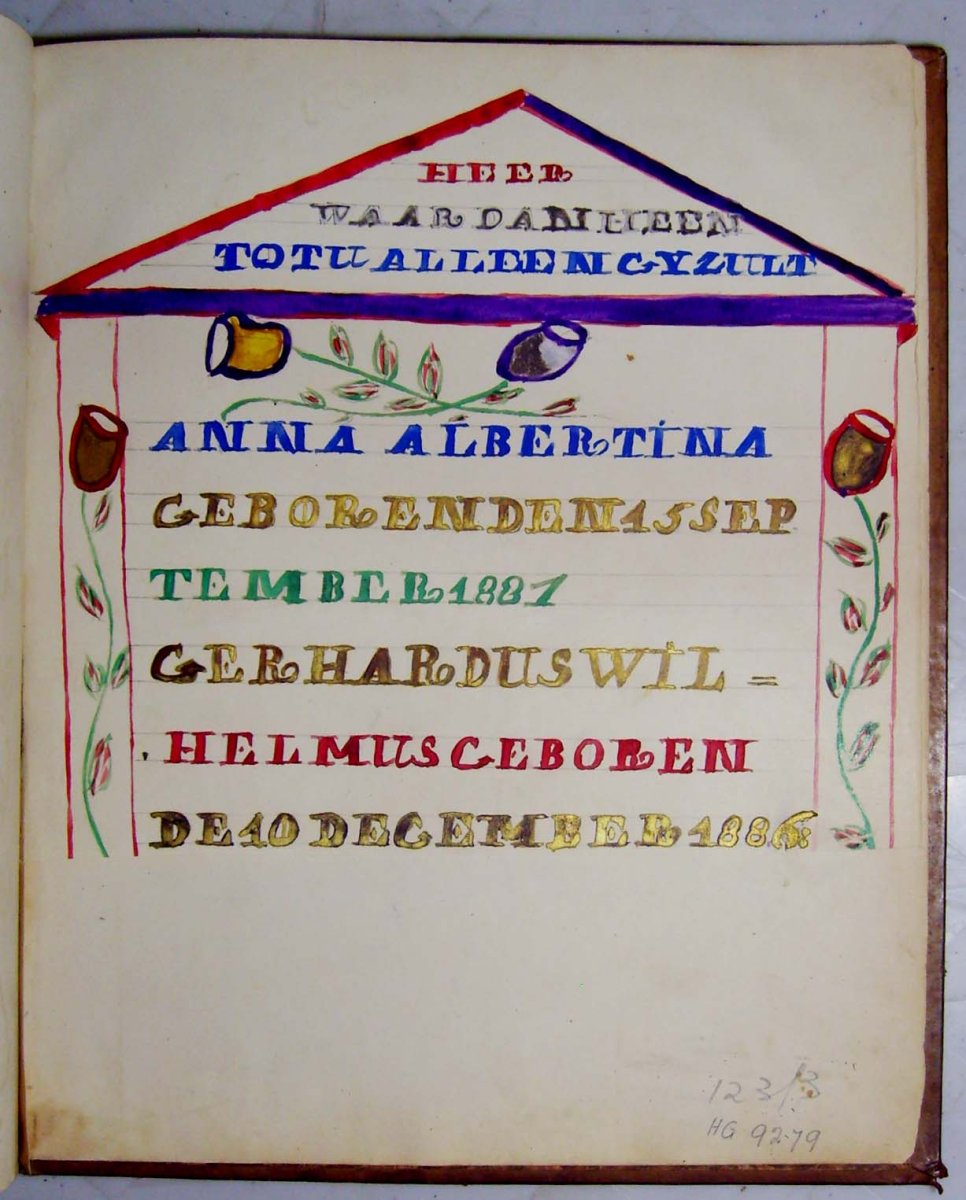 HEER
WAAR DAN HEEN
TOT U ALLEEN GY ZULT
ANNA ALBERTINA
GEBOREN DEN 15 SEP
TEMBER 1881
GERHARDUS WIL=
HELMUS GEBOREN
DE 10 DECEMBER 1886:
123/3
HG 92-79